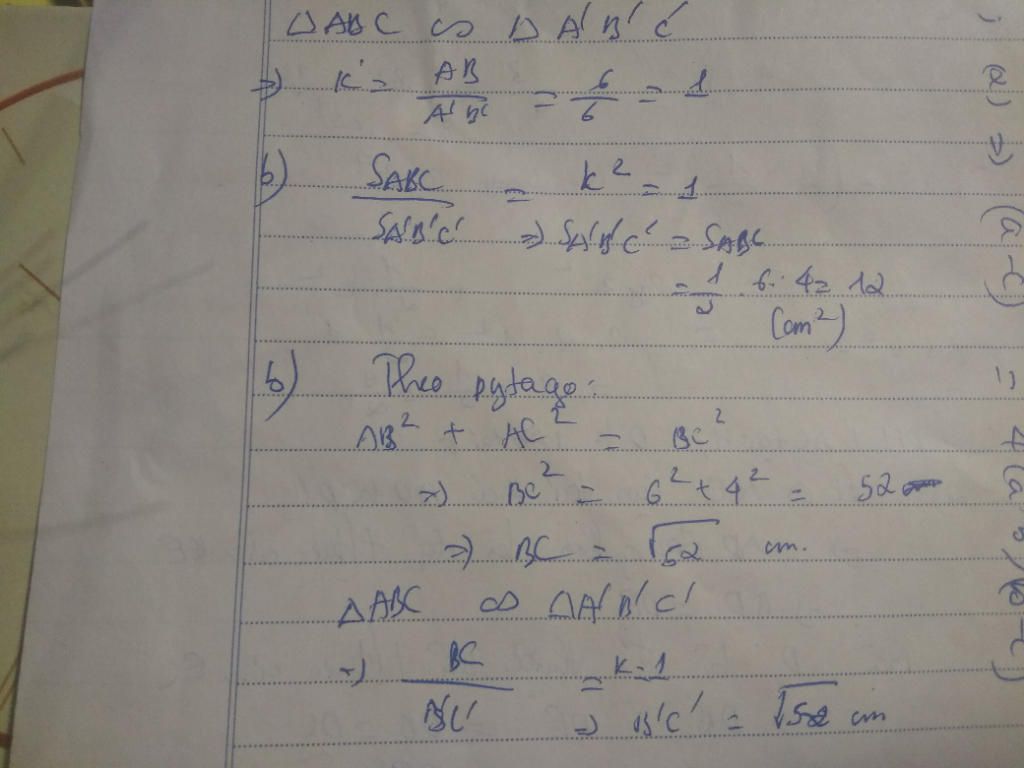 △ABC ∽ △A'B'C'
=> K = AB/A'B' = 6/6 = 1
b) SABC/SA'B'C' = k² = 1
=> SA'B'C' = SABC
= 1/2 . 6 . 4 = 12
(cm²)
b) Theo pytago:
AB² + AC² = BC²
=> BC² = 6² + 4² = 52
=> BC = √52 cm.
△ABC ∽ △A'B'C'
=> BC/B'C' = K = 1
=> B'C' = √52 cm